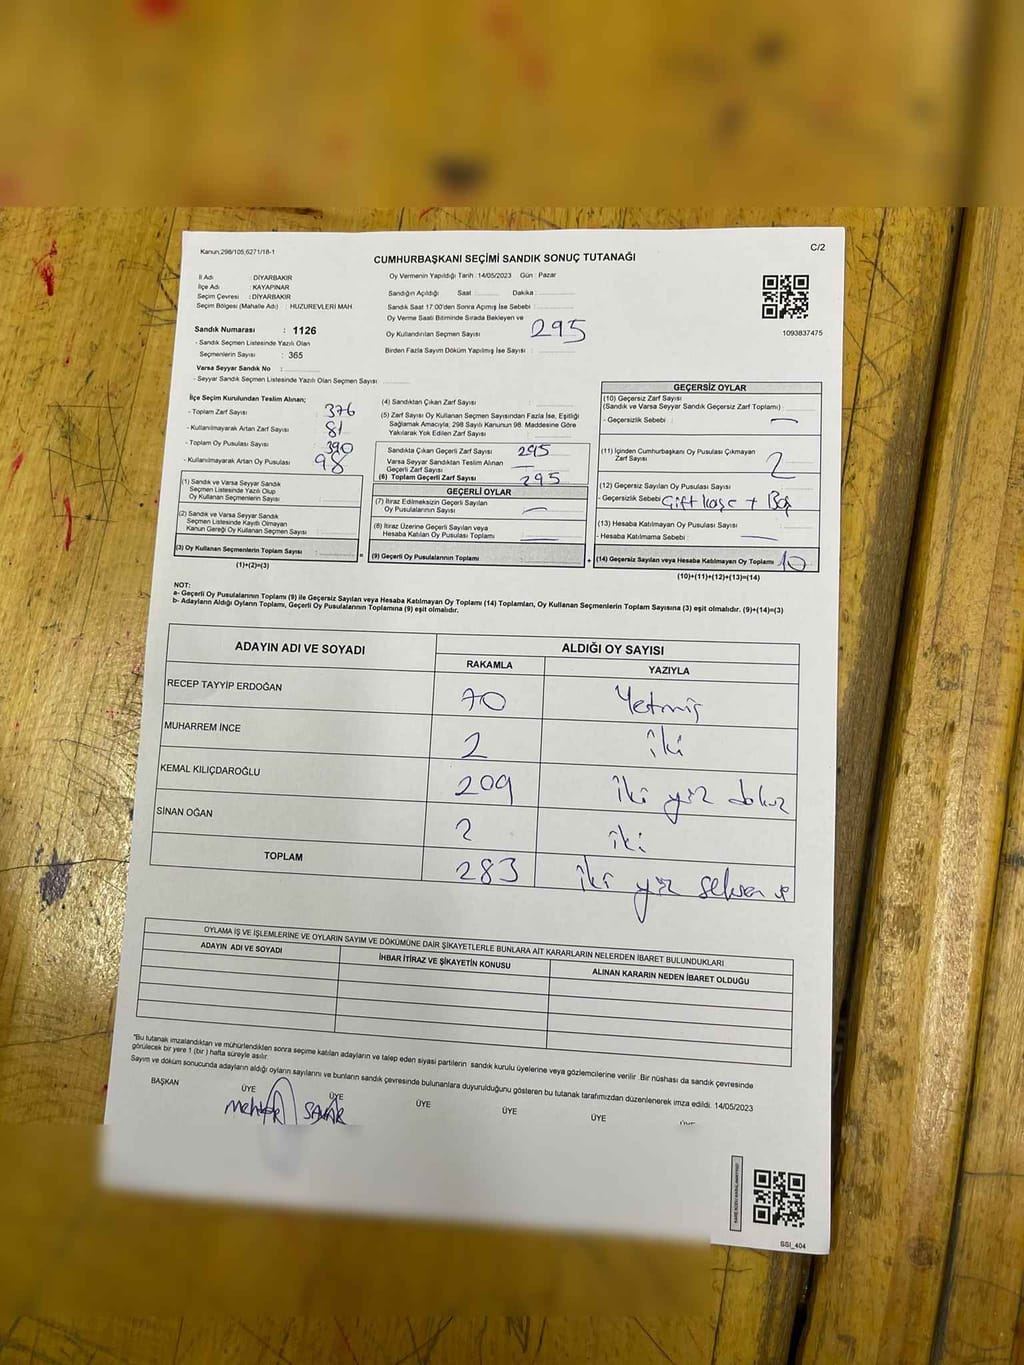 Kanun;298/105,6271/18-1
C/2
CUMHURBAŞKANI SEÇİMİ SANDIK SONUÇ TUTANAĞI
İl Adı : DİYARBAKIR
İlçe Adı : KAYAPINAR
Seçim Çevresi : DİYARBAKIR
Seçim Bölgesi (Mahalle Adı) : HUZUREVLERİ MAH.
Oy Vermenin Yapıldığı Tarih :14/05/2023 Gün : Pazar
Sandığın Açıldığı Saat : Dakika :
Sandık Saat 17:00'den Sonra Açımış İse Sebebi :
Oy Verme Saati Bitiminde Sırada Bekleyen ve
Oy Kullandırılan Seçmen Sayısı 295
Birden Fazla Sayım Döküm Yapılmış İse Sayısı :
1093837475
Sandık Numarası : 1126
- Sandık Seçmen Listesinde Yazılı Olan
Seçmenlerin Sayısı : 365
Varsa Seyyar Sandık No :
- Seyyar Sandık Seçmen Listesinde Yazılı Olan Seçmen Sayısı :
İlçe Seçim Kurulundan Teslim Alınan;
- Toplam Zarf Sayısı : 376
- Kullanılmayarak Artan Zarf Sayısı : 81
- Toplam Oy Pusulası Sayısı : 390
- Kullanılmayarak Artan Oy Pusulası : 98
(1) Sandık ve Varsa Seyyar Sandık
Seçmen Listesinde Yazılı Olup
Oy Kullanan Seçmenlerin Sayısı :
(2) Sandık ve Varsa Seyyar Sandık
Seçmen Listesinde Kayıtlı Olmayan
Kanun Gereği Oy Kullanan Seçmen Sayısı :
(3) Oy Kullanan Seçmenlerin Toplam Sayısı :
(1)+(2)=(3)
(4) Sandıktan Çıkan Zarf Sayısı :
(5) Zarf Sayısı Oy Kullanan Seçmen Sayısından Fazla İse, Eşitliği
Sağlamak Amacıyla; 298 Sayılı Kanunun 98. Maddesine Göre
Yakılarak Yok Edilen Zarf Sayısı :
Sandıkta Çıkan Geçerli Zarf Sayısı : 295
Varsa Seyyar Sandıktan Teslim Alınan
Geçerli Zarf Sayısı :
(6) Toplam Geçerli Zarf Sayısı : 295
GEÇERLİ OYLAR
(7) İtiraz Edilmeksizin Geçerli Sayılan
Oy Pusulalarının Sayısı :
(8) İtiraz Üzerine Geçerli Sayılan veya
Hesaba Katılan Oy Pusulası Toplamı :
(9) Geçerli Oy Pusulalarının Toplamı :
GEÇERSİZ OYLAR
(10) Geçersiz Zarf Sayısı
(Sandık ve Varsa Seyyar Sandık Geçersiz Zarf Toplamı) :
- Geçersizlik Sebebi :
(11) İçinden Cumhurbaşkanı Oy Pusulası Çıkmayan
Zarf Sayısı : 2
(12) Geçersiz Sayılan Oy Pusulası Sayısı :
- Geçersizlik Sebebi : Çift kaşe + Boş
(13) Hesaba Katılmayan Oy Pusulası Sayısı :
- Hesaba Katılmama Sebebi :
(14) Geçersiz Sayılan veya Hesaba Katılmayan Oy Toplamı : 10
(10)+(11)+(12)+(13)=(14)
NOT:
a- Geçerli Oy Pusulalarının Toplamı (9) ile Geçersiz Sayılan veya Hesaba Katılmayan Oy Toplamı (14) Toplamları, Oy Kullanan Seçmenlerin Toplam Sayısına (3) eşit olmalıdır. (9)+(14)=(3)
b- Adayların Aldığı Oyların Toplamı, Geçerli Oy Pusulalarının Toplamına (9) eşit olmalıdır.
ADAYIN ADI VE SOYADI ALDIĞI OY SAYISI
RAKAMLA YAZIYLA
RECEP TAYYİP ERDOĞAN 70 Yetmiş
MUHARREM İNCE 2 iki
KEMAL KILIÇDAROĞLU 209 iki yüz dokuz
SİNAN OĞAN 2 iki
TOPLAM 283 iki yüz seksen üç
OYLAMA İŞ VE İŞLEMLERİNE VE OYLARIN SAYIM VE DÖKÜMÜNE DAİR ŞİKAYETLERLE BUNLARA AİT KARARLARIN NELERDEN İBARET BULUNDUKLARI
ADAYIN ADI VE SOYADI İHBAR İTİRAZ VE ŞİKAYETİN KONUSU ALINAN KARARIN NEDEN İBARET OLDUĞU
"Bu tutanak imzalandıktan ve mühürlendikten sonra seçime katılan adayların ve talep eden siyasi partilerin sandık kurulu üyelerine veya gözlemcilerine verilir .Bir nüshası da sandık çevresinde
görülecek bir yere 1 (bir ) hafta süreyle asılır.
Sayım ve döküm sonucunda adayların aldığı oyların sayılarını ve bunların sandık çevresinde bulunanlara duyurulduğunu gösteren bu tutanak tarafımızdan düzenlenerek imza edildi. 14/05/2023
BAŞKAN ÜYE ÜYE ÜYE ÜYE ÜYE ÜYE
SSİ_404